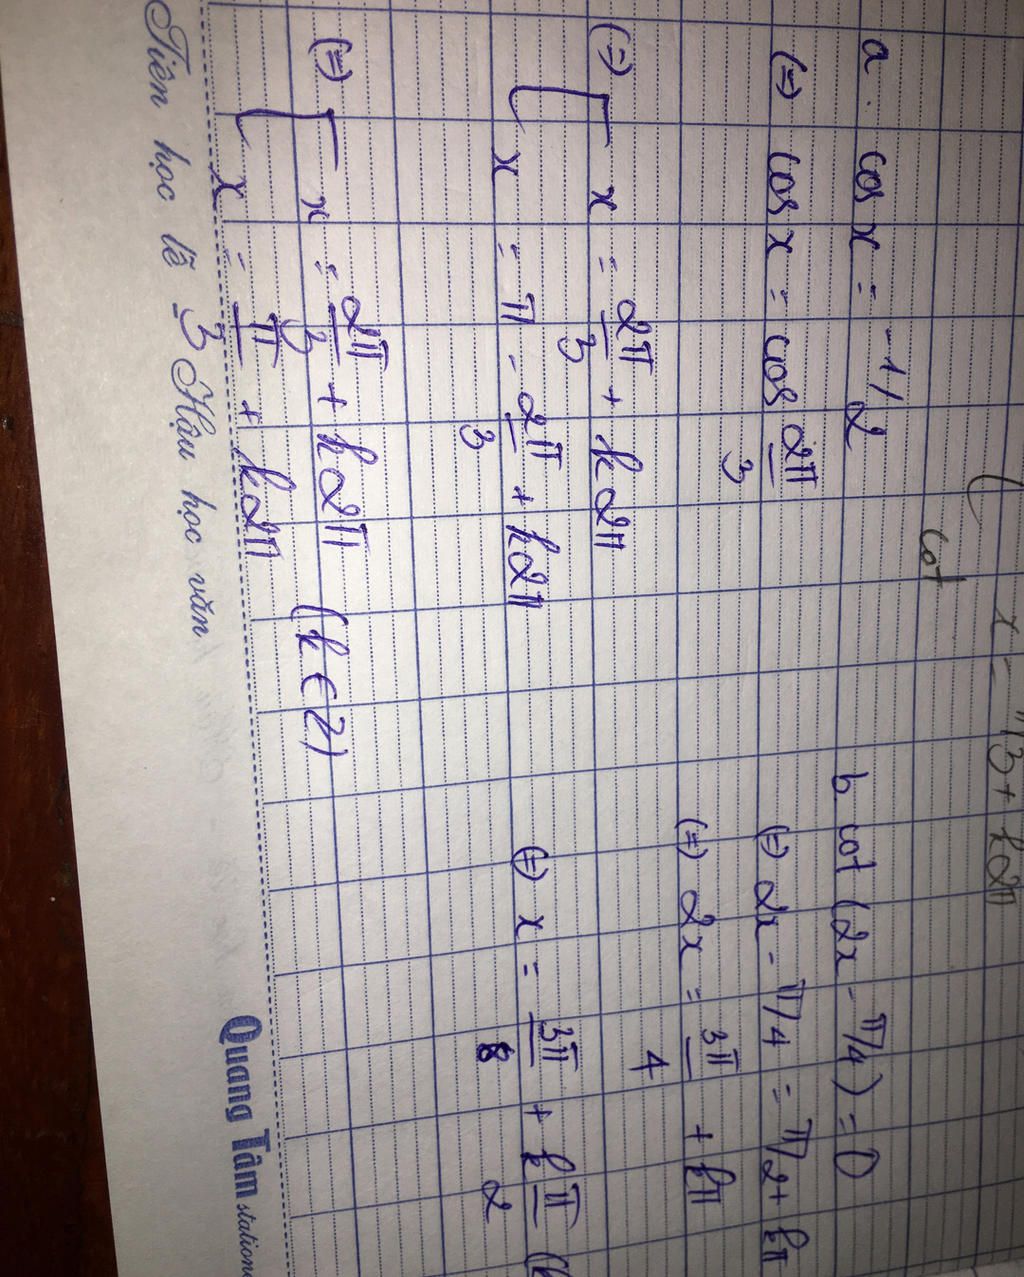 x = π/3 + k2π
cot
a. cos x = -1/2
(=) cos x = cos 2π/3
(=) [ x = 2π/3 + k2π
x = π - 2π/3 + k2π
(=) [ x = 2π/3 + k2π (k ∈ Z)
x = π/3 + k2π
b. cot (2x - π/4) = 0
(=) 2x - π/4 = π/2 + kπ
(=) 2x = 3π/4 + kπ
(=) x = 3π/8 + kπ/2 (k
Tiên học lễ - Hậu học văn
Quang Tâm station